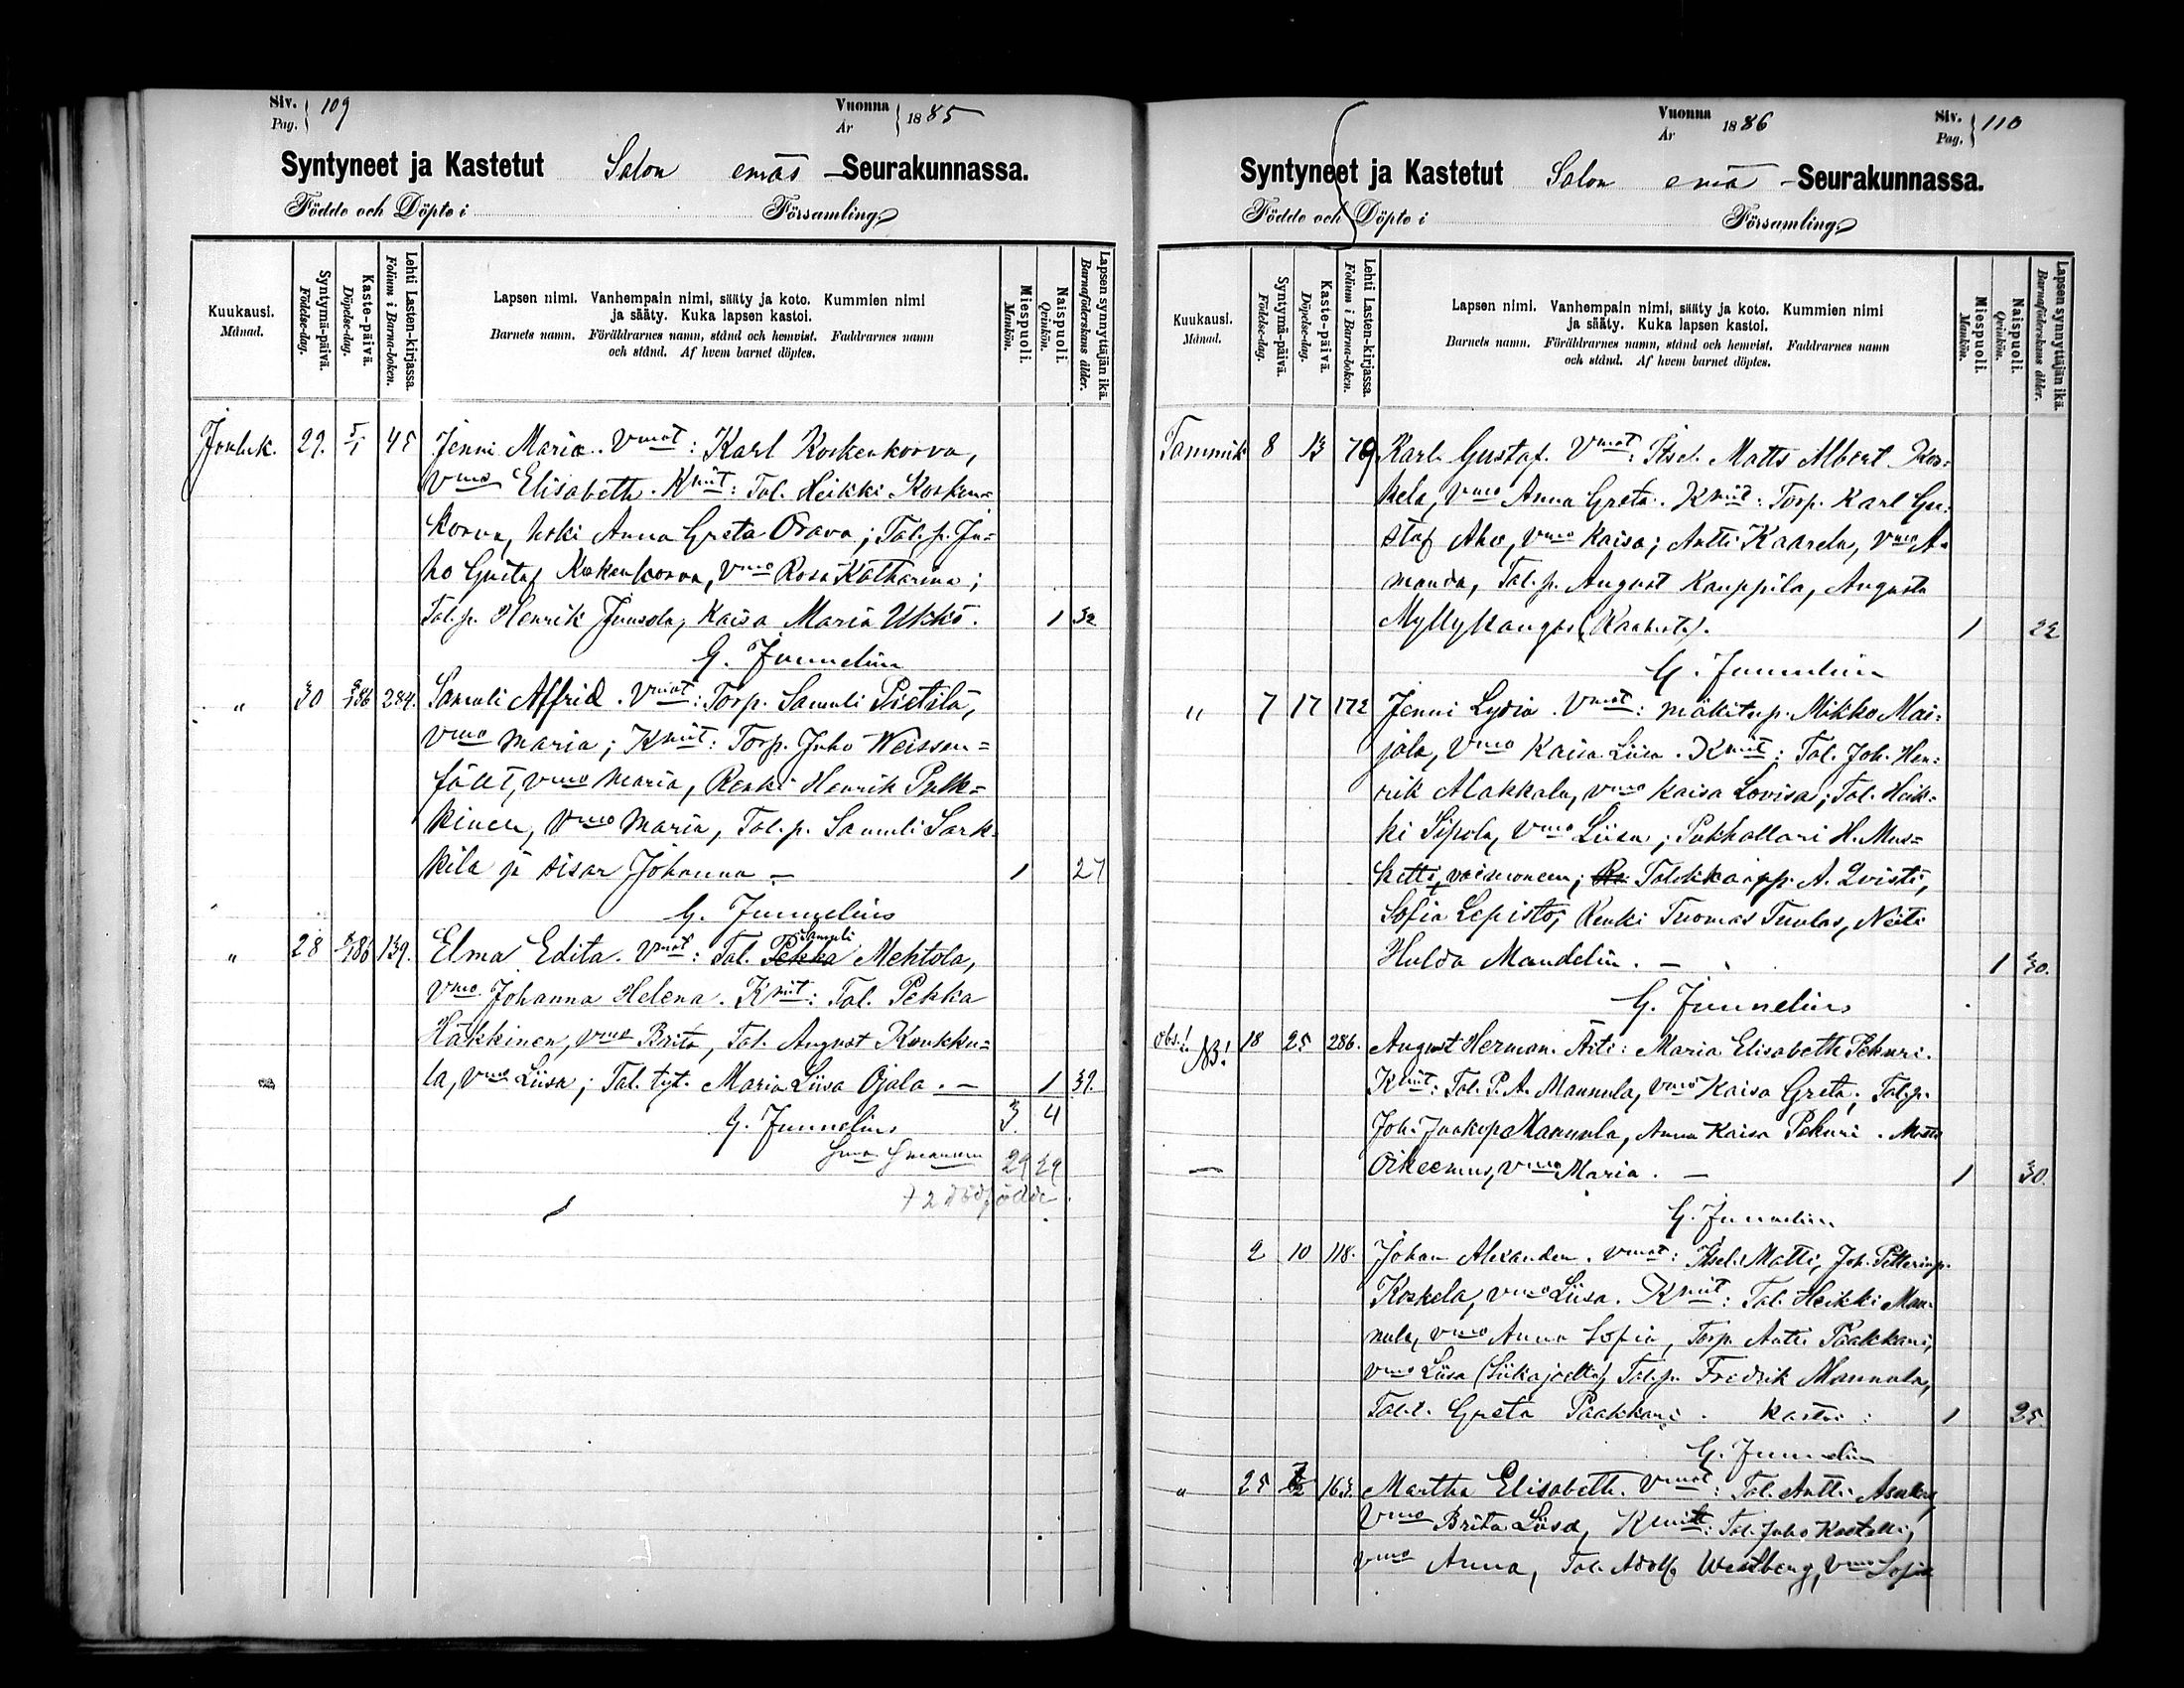 Siv. Pag. 109
Vuonna År 1885
Syntyneet ja Kastetut Salon emäs -Seurakunnassa.
Födde och Döpte i Församling.
Kuukausi. Månad.
Syntymä-päivä. Födelse-dag.
Kaste-päivä. Döpelse-dag.
Lehti Lasten-kirjassa. Folium i Barna-boken.
Lapsen nimi. Vanhempain nimi, sääty ja koto. Kummien nimi
ja sääty. Kuka lapsen kastoi.
Barnets namn. Föräldrarnes namn, stånd och hemvist. Faddrarnes namn
och stånd. Af hvem barnet döptes.
Miespuoli. Mankön.
Naispuoli. Qvinkön.
Lapsen synnyttäjän ikä. Barnaföderskans ålder.
Jouluk. 29. 5/1 45 Jenni Maria. Vmat: Karl Koskenkorva,
Vmo Elisabeth. Kmit: Tal. Heikki Kosken=
korva, leski Anna Greta Orava; Tal.p. Ju=
ho Gustaf Koskenkorva, Vmo Rosa Katharina;
Tal.p. Henrik Juusola, Kaisa Maria Ukko. 1 32
G. Junnelius
" 30 284. Samuli Alfrid. Vmat: Torp. Samuli Pietilä,
Vmo Maria; Kmit: Torp. Juho Weissen=
fält, vmo Maria, Renki Henrik Pulk=
kinen, Vmo Maria, Tal.p. Samuli Sark=
kila ja sisar Johanna – 1 27
G. Junnelius
Samuli
" 28 139. Elma Edita. Vmat: Tal. Pekka Mehtola,
Vmo Johanna Helena. Kmit: Tal. Pekka
Häkkinen, vmo Brita, Tal. August Koukku=
la, vmo Liisa; Tal. tyt. Maria Liisa Ojala. – 1 39.
G. Junnelius 3 4
29 29
+ 2 dödfödde
Siv. Pag. 110
Vuonna År 1886
Syntyneet ja Kastetut Salon emä -Seurakunnassa.
Födde och Döpte i Församling.
Kuukausi. Månad.
Syntymä-päivä. Födelse-dag.
Kaste-päivä. Döpelse-dag.
Lehti Lasten-kirjassa. Folium i Barna-boken.
Lapsen nimi. Vanhempain nimi, sääty ja koto. Kummien nimi
ja sääty. Kuka lapsen kastoi.
Barnets namn. Föräldrarnes namn, stånd och hemvist. Faddrarnes namn
och stånd. Af hvem barnet döptes.
Miespuoli. Mankön.
Naispuoli. Qvinkön.
Lapsen synnyttäjän ikä. Barnaföderskans ålder.
Tammik 8 13 79 Karl Gustaf. Vmat: Itsel. Matts Albert Kos=
kela, Vmo Anna Greta. Kmit: Torp. Karl Gu=
staf Aho, vmo Kaisa; Antti Kaarela, vmo A=
manda, Tal.p. August Kauppila, Augusta
Myllykangas 1 22
G. Junnelius
" 7 17 172 Jenni Lydia. Vmat: mäkitup. Mikko Mai=
jala, Vmo Kaisa Liisa. Kmit: Tal. Joh. Hen=
rik Alakkala, vmo Kaisa Lovisa; Tal. Heik=
ki Sipola, Vmo Liisa; Puhhallari H. Mus=
ketti, vaimoneen; A. Qvisti,
Sofia Lepistö; Renki Tuomas Tuulas, Neiti
Hulda Mandelin. – 1 30.
G. Junnelius
Obs! NB! 18 25 286. August Herman. Äiti: Maria Elisabeth Pekuri.
Kmit: Tal. P. A. Mannula, vmo Kaisa Greta; Tal.p.
Joh. Jaakop Mannula, Anna Kaisa Pekuri. Matts
Oikeemus, vmo Maria. – 1 30.
G. Junnelius
2 10 118. Johan Alexander. Vmat: Itsel. Matti, Joh. Petterinp.
Koskela, vmo Liisa. Kmit: Tal. Heikki Man=
nula, vmo Anna Sofia, Torp. Antti Paakkari,
vmo Liisa (Siikajoelta) Tal.p. Fredrik Mannula,
Tal.t. Greta Paakkari. kastoi: 1 25.
G. Junnelius
" 25 163. Martha Elisabeth. Vmat: Tal. Antti
Vmo Brita Liisa, Kmit: Tal. Juho Kastelli,
vmo Anna, Tal. Adolf Westberg, Vmo Sofia